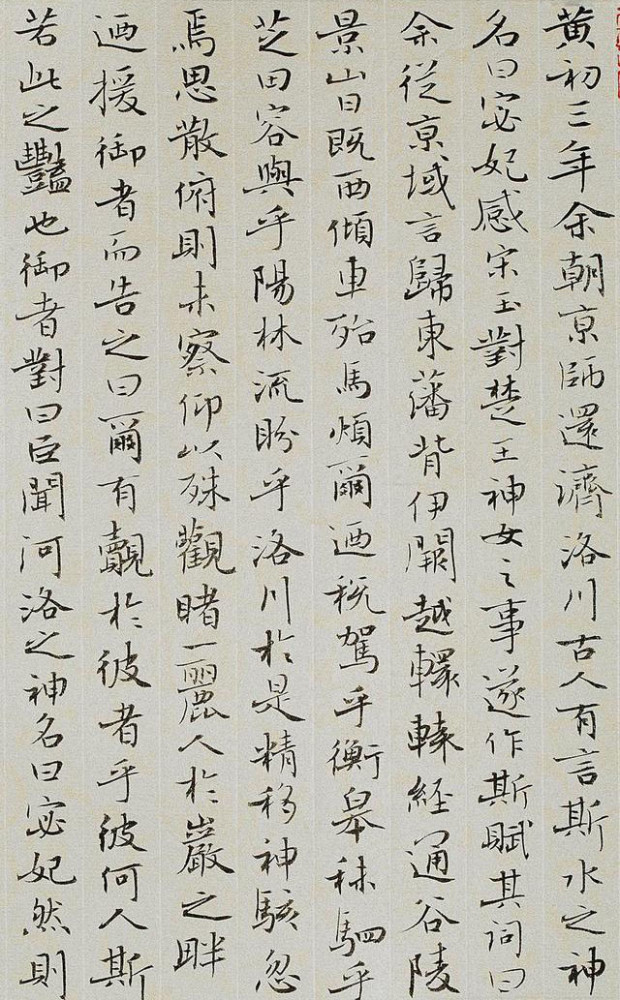 黄初三年余朝京師還濟洛川古人有言斯水之神
名曰宓妃感宋玉對楚王神女之事遂作斯賦其詞曰
余從京域言歸東藩背伊闕越轘轅經通谷陵
景山日既西傾車殆馬煩爾迺稅駕乎蘅皋秣駟乎
芝田容與乎陽林流盼乎洛川於是精移神駭忽
焉思散俯則未察仰以殊觀睹一麗人於巖之畔
迺援御者而告之曰爾有覿於彼者乎彼何人斯
若此之豔也御者對曰臣聞河洛之神名曰宓妃然則